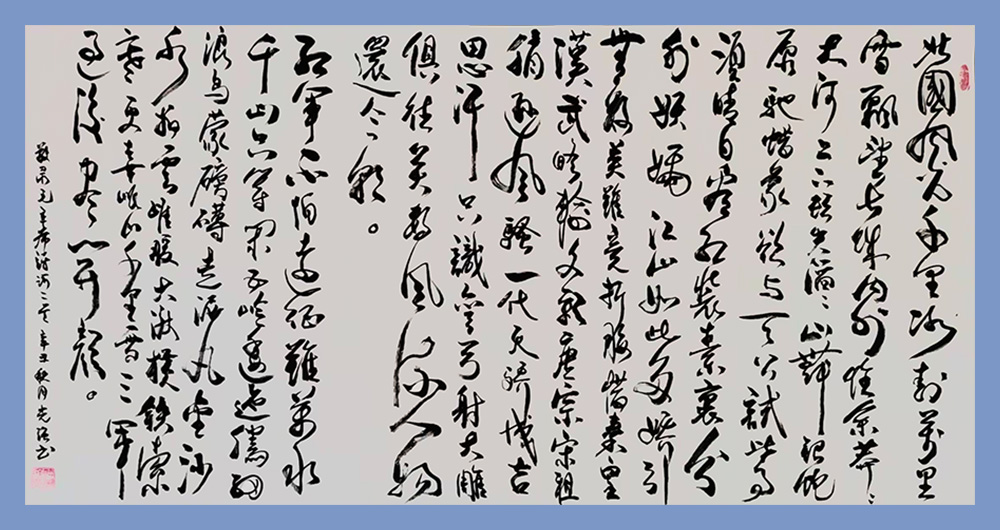 北國風光千里冰封萬里
雪飄望長城內外惟余莽〻
大河上下頓失滔〻山舞銀蛇
原馳蠟象欲與天公試比高
須晴日看紅裝素裹分
外妖嬈江山如此多嬌引
無數英雄竞折腰惜秦皇
漢武略輸文彩唐宗宋祖
稍遜風騷一代天驕成吉
思汗只識彎弓射大雕
俱往矣數風流人物
還看今朝。
紅軍不怕遠征難萬水
千山只等閑五嶺逶迤騰細
浪烏蒙磅礴走泥丸金沙
水拍雲崖暖大渡橫鐵索
寒更喜岷山千里雪三軍
過後尽開顏。
敬录毛主席诗词二首 辛丑秋月光强书